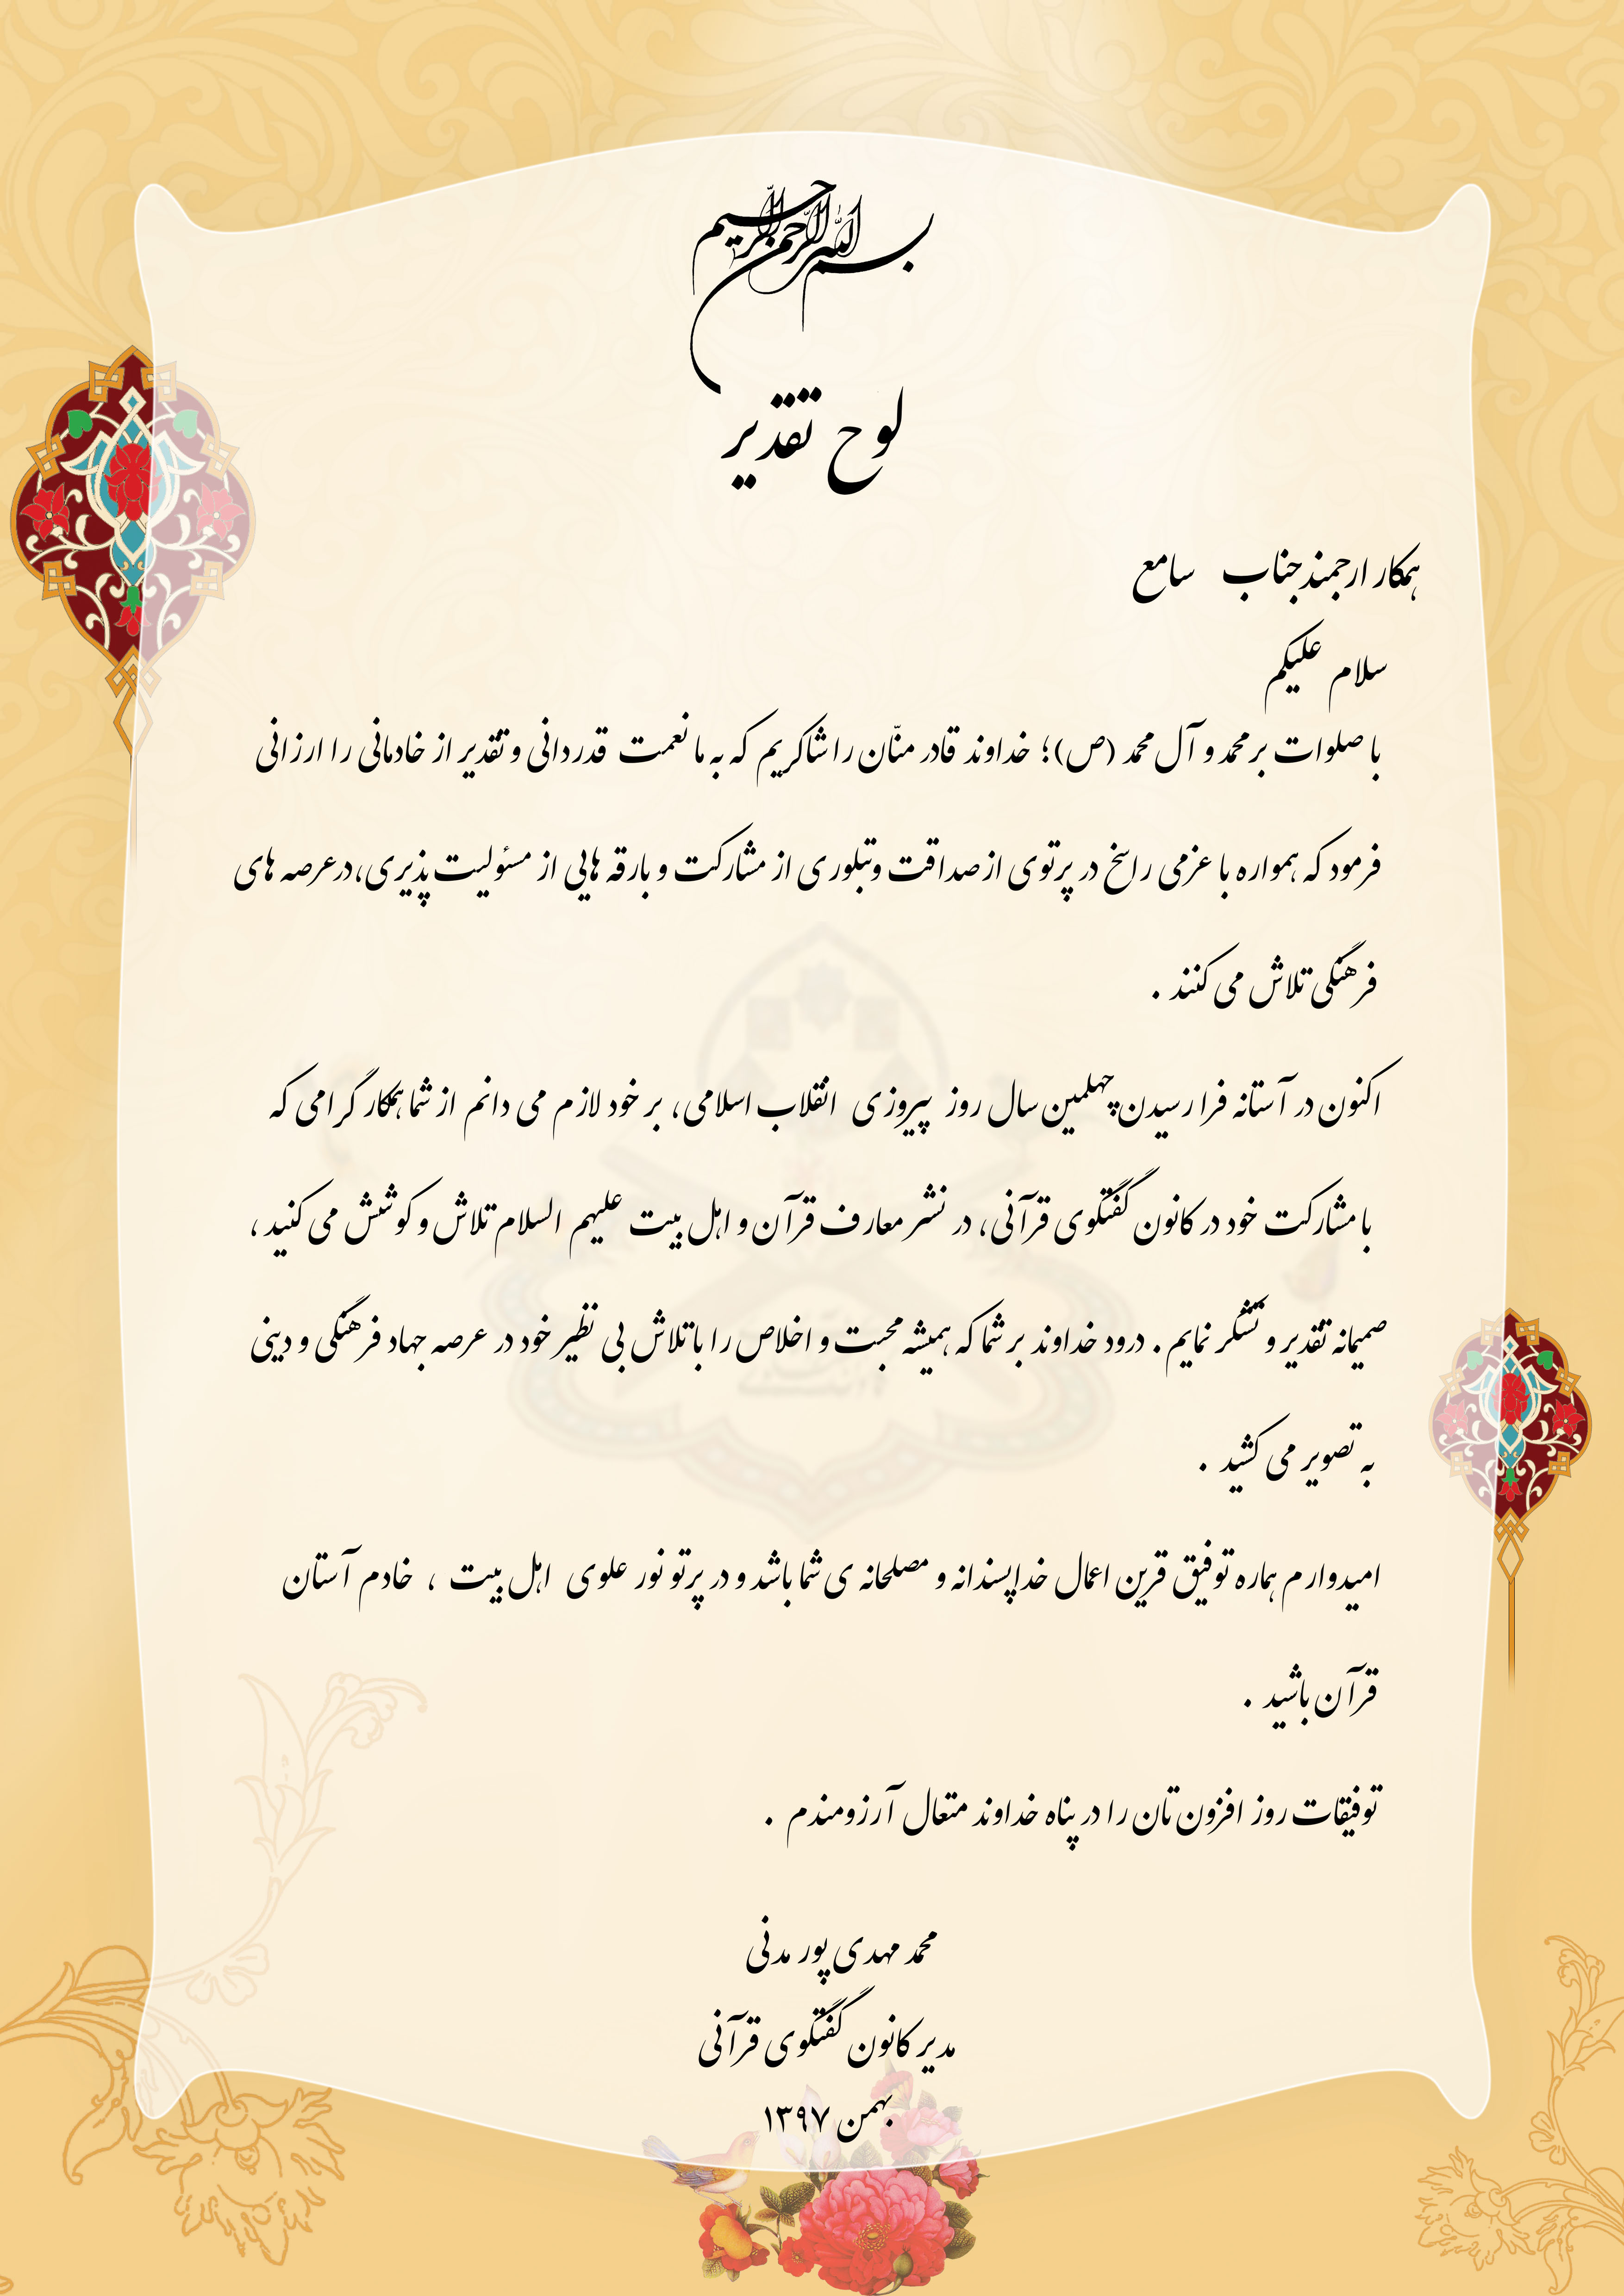 بسم الله الرحمن الرحیم
لوح تقدیر
همکار ارجمند جناب سامع
سلام علیکم
با صلوات بر محمد و آل محمد (ص)؛ خداوند قادر منّان را شاکریم که به ما نعمت قدردانی و تقدیر از خادمانی را ارزانی
فرمود که همواره با عزمی راسخ در پرتوی از صداقت وتبلوری از مشارکت و بارقه هایی از مسئولیت پذیری،درعرصه های
فرهنگی تلاش می کنند .
اکنون در آستانه فرا رسیدن چهلمین سال روز پیروزی انقلاب اسلامی، بر خود لازم می دانم از شما همکار گرامی که
با مشارکت خود در کانون گفتگوی قرآنی، در نشر معارف قرآن و اهل بیت علیهم السلام تلاش و کوشش می کنید ،
صمیمانه تقدیر و تشکر نمایم . درود خداوند بر شما که همیشه محبت و اخلاص را با تلاش بی نظیر خود در عرصه جهاد فرهنگی و دینی
به تصویر می کشید .
امیدوارم هماره توفیق قرین اعمال خداپسندانه و مصلحانه ی شما باشد و در پرتو نور علوی اهل بیت ، خادم آستان
قرآن باشید .
توفیقات روز افزون تان را در پناه خداوند متعال آرزومندم .
محمد مهدی پور مدنی
مدیر کانون گفتگوی قرآنی
بهمن ۱۳۹۷